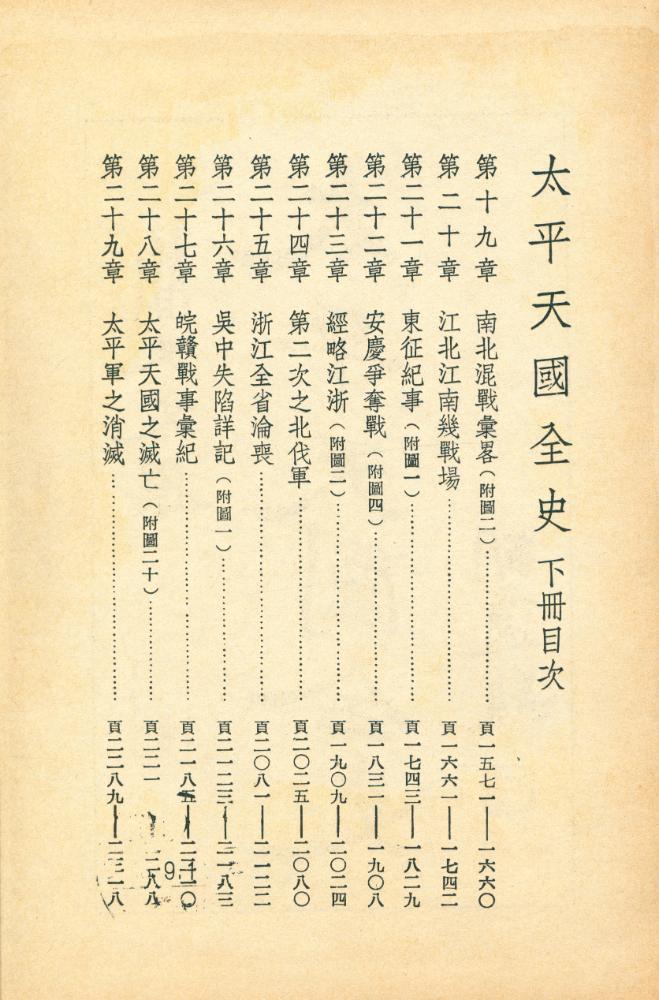 太平天國全史 下冊目次
第十九章 南北混戰彙畧(附圖二)………頁一五七一——一六六〇
第二十章 江北江南幾戰場………頁一六六一——一七四二
第二十一章 東征紀事(附圖一)………頁一七四三——一八二九
第二十二章 安慶爭奪戰(附圖四)………頁一八三一——一九〇八
第二十三章 經略江浙(附圖二)………頁一九〇九——二〇二四
第二十四章 第二次之北伐軍………頁二〇二五——二〇八〇
第二十五章 浙江全省淪喪………頁二〇八一——二一二二
第二十六章 吳中失陷詳記(附圖一)………頁二一二三——二一八三
第二十七章 皖贛戰事彙紀………頁二一八五——二二一〇
第二十八章 太平天國之滅亡(附圖二十)………頁二二一 二二八八
第二十九章 太平軍之消滅………頁二二八九——二三一八